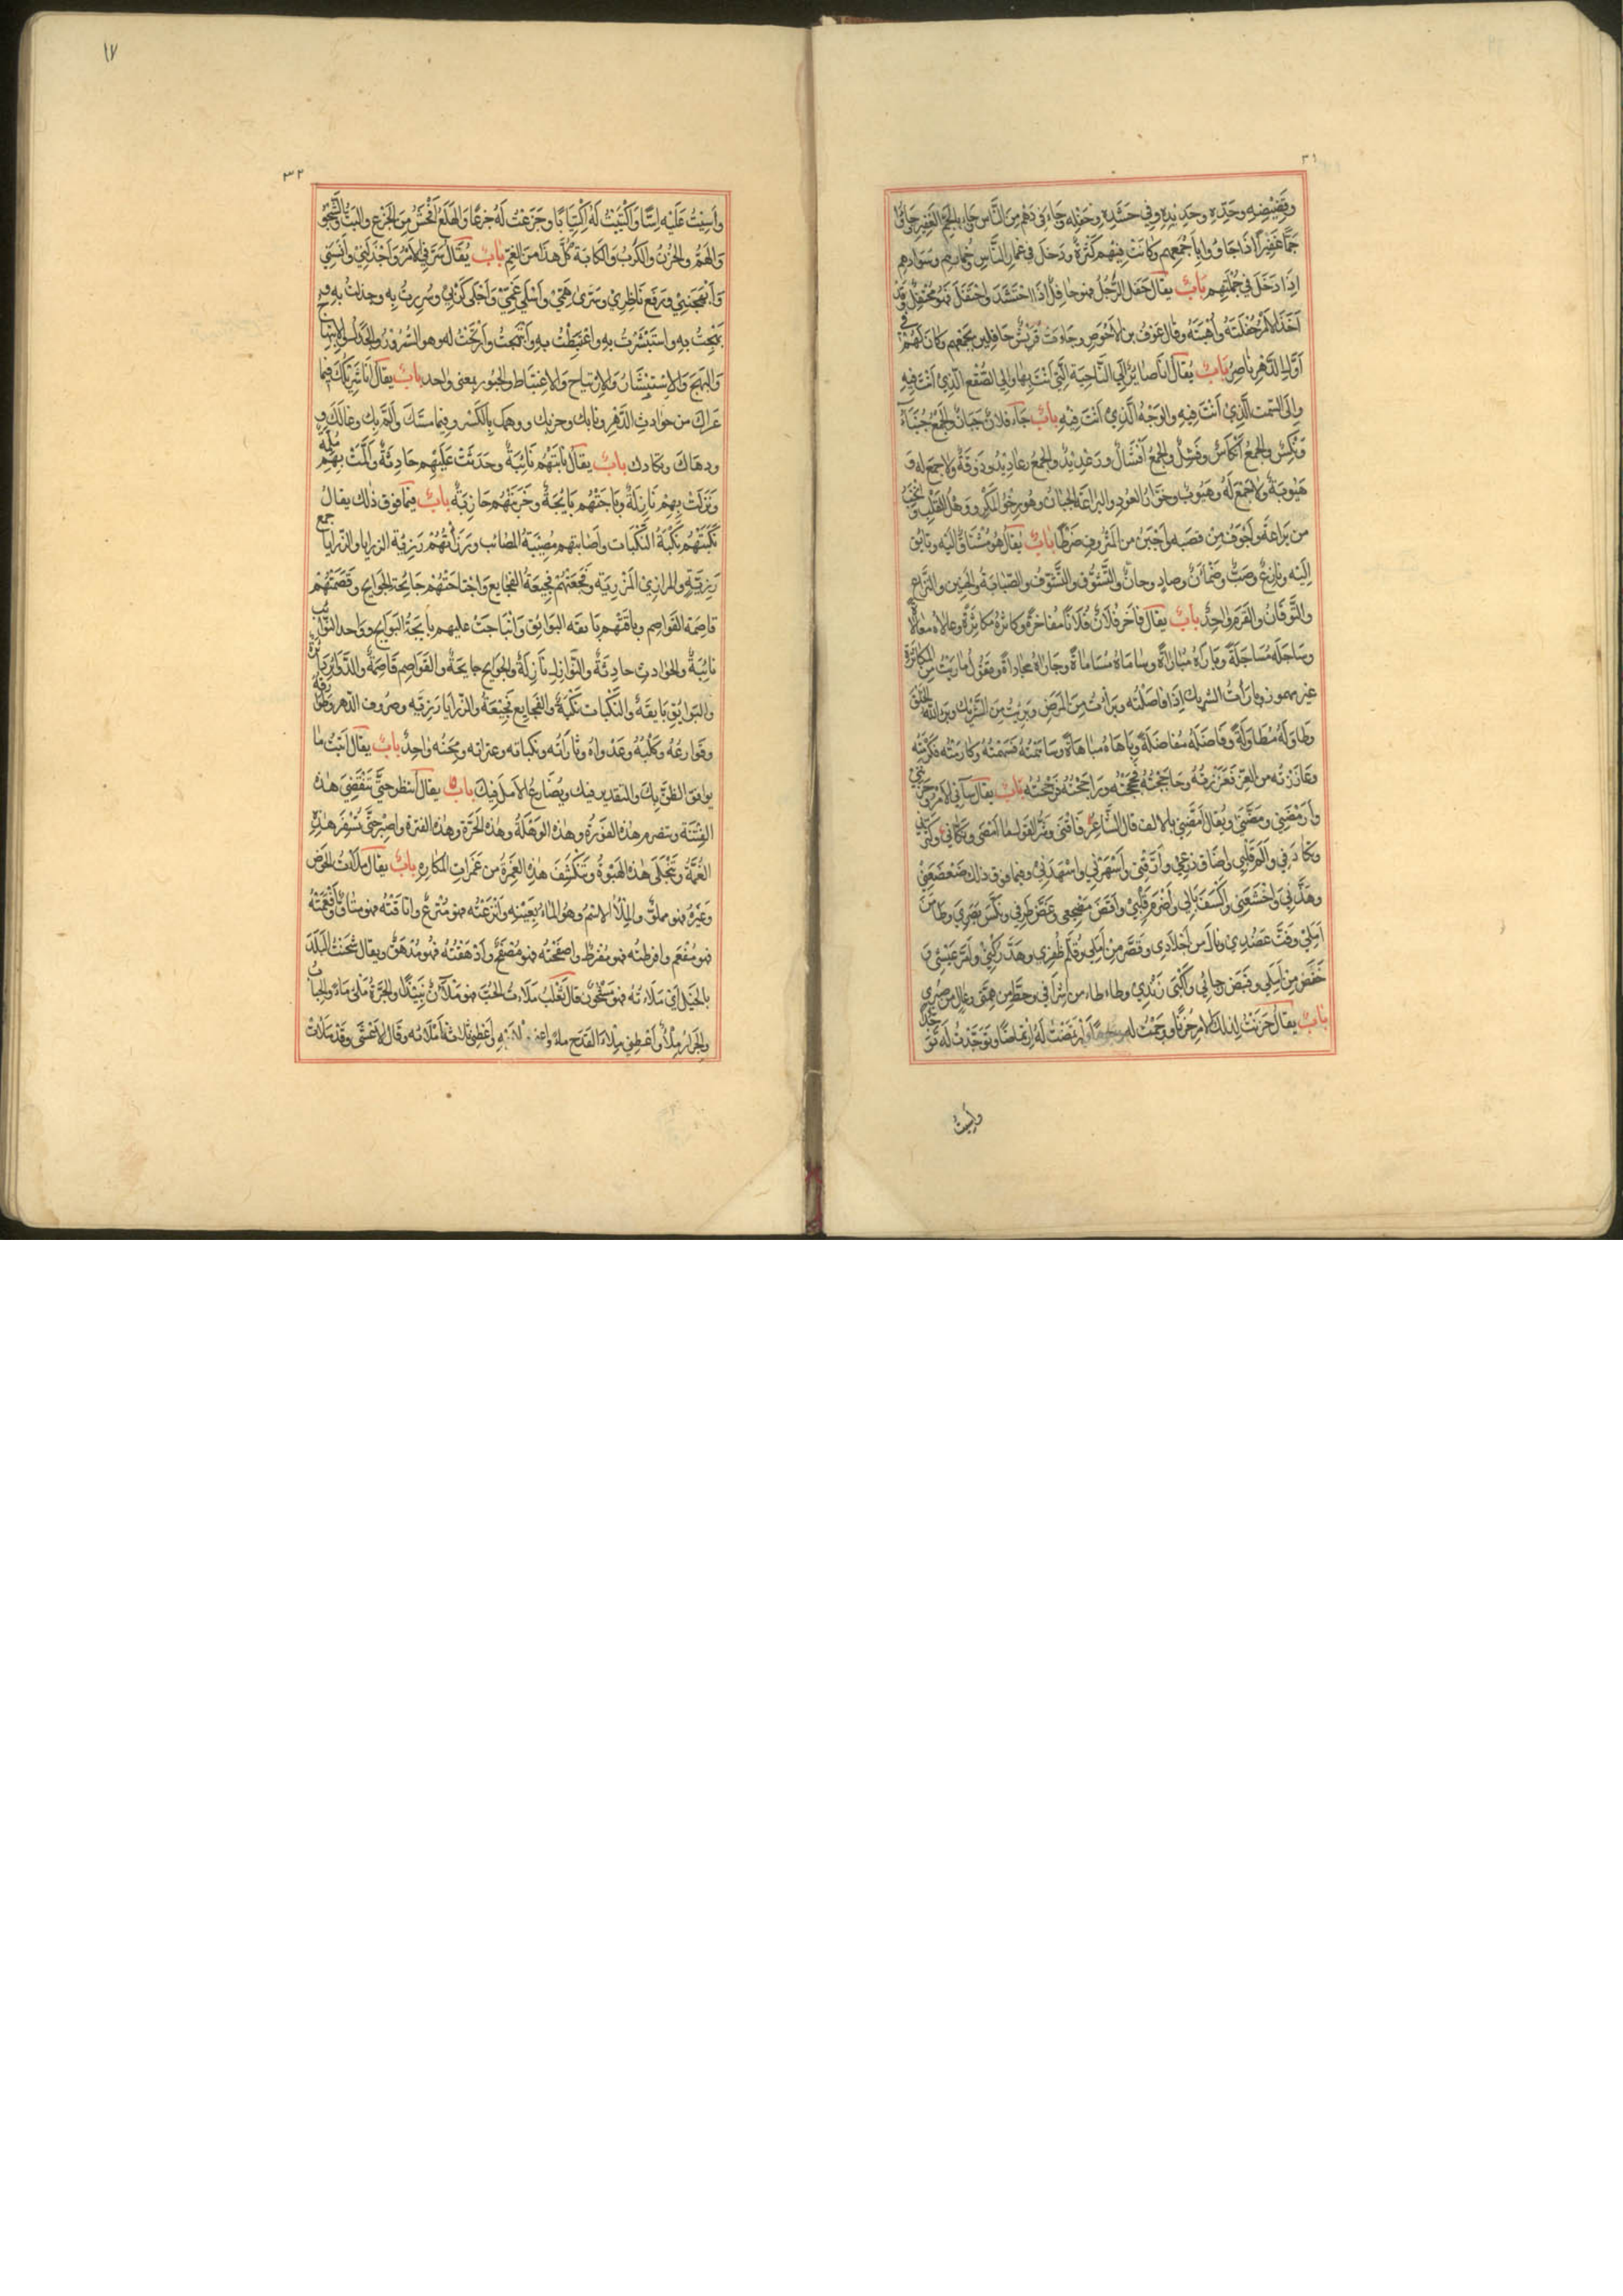 ٣١
وقضيضه وحدّه وحديده وفي حشده وحفله وجاء في دهم من الناس وجاء الجم الغفير جاؤا
جمّا غفيرا اذا جاؤا باجمعهم وكانت فيهم كثرة ودخل في غمار الناس وخمارهم وسوادهم
اذا دخل في جملتهم باب يقال حفل الرجل فهو حافل اذا احتشد واحتفل فهو محتفل وقد
اخذ للامر حفلته واهبته وقال عوف بن الاحوص وجاءت قريش حافلين بجمعهم وكان لهم في
اول الدهر ناصر باب يقال انا صائر الى الناحية التي انت بها والى الصقع الذي انت فيه
والى السمت الذي انت فيه والوجه الذي انت فيه باب جاء فلان جبان والجمع جبناء
ونكس والجمع انكاس وفشل والجمع افشال ورعديد والجمع رعاديد وفروقة ولا جمع له و
هيوبة ولا جمع له وهيوب وخوار العود واليراعة الجبان وهو رخو المكسر ووهل القلب ونخب
من يراعة واجوف من قصبة واجبن من المنزوف ضرطا باب يقال هو مشتاق اليه وتائق
اليه ونازع وصبّ وظمآن وصاد وحانّ والتشوق والتشوف والصبابة والحنين والنزاع
والتوقان والقرم واحد باب يقال فاخر فلان فلانا مفاخرة وكاثره مكاثرة وعالاه معالاة
وساجله مساجلة وباراه مباراة وساماه مساماة وجاراه مجاراة وتقول باريت من المكاثرة
غير مهموز وبارأت الشريك اذا فاصلته وبرأت من المرض وبريت من الشريك وبرأ الله الخلق
وطاوله مطاولة وفاضله مفاضلة وباهاه مباهاة وساهمته فسهمته وكارمته فكرمته
وعاززته من العز فعززته وحاججته فحججته وراجحته فرجحته باب يقال ساءني الامر وحزنني
وارمضني ومضني ويقال امضني بالالف قال الشاعر فاقنى وشر القول ما امضى
وتكاءدني والم قلبي واضاق ذرعي وارقني واسهرني واسهدني وفيما فوق ذلك ضعضعني
وهدّني واخشعني واكسف بالي واضرم قلبي واقض مضجعي وغض طرفي ونكس بصري وطامن
املي وفتّ عضدي ونال من اجلادي وقصر من املي وقلم ظفري وهدّ ركني وامرّ عيشي و
خفض من املي وقبض رجائي واكبى زندي وطاطا من اشرافي وحط من همتي
باب يقال حزنت لذلك الامر حزنا ووجمت له وارتمضت له ارتماضا وتوجدت له
واسيت
١٧
٣٢
واسيت عليه اسًا واكتئبت له اكتيابا وجزعت له جزعا والهلع افحش من الجزع والبث والشجو
والهم والحزن والكرب والكابة كل هذا من الغم باب يقال سرني الامر واجذلني وانسني
وابهجني ورفع ناظري وسرّى همي واسلى غمي واجلى كربي وسررت به وجذلت به و
بهجت به واستبشرت به واغتبطت به وابتهجت وارتحت له وهو السرور والجذل والابتهاج
والبهج والاستبشار والارتياح والاغتباط والحبور بمعنى واحد باب يقال انا شريكك فيما
عراك من حوادث الدهر ونابك وحزبك ووهك بالكسر وفيما مسّك والمّ بك وعالك و
ودهاك وتكادك باب يقال نابتهم نائبة وحدثت عليهم حادثة والمت بهم ملمة
ونزلت بهم نازلة وباجتهم بايجة وحزبتهم حازبة باب فيما فوق ذلك يقال
نكبتهم نكبة النكبات واصابتهم مصيبة المصائب ورزاتهم رزية الرزايا والرزايا جمع
رزية والمرازي المرزية وفجعتهم فجيعة الفجايع واجتاحتهم جائحة الجوايح وقصمتهم
قاصمة القواصم وباقتهم بايقة البوائق وانباجت عليهم بايجة البوايج وواحد النوائب
نائبة والحوادث حادثة والنوازل نازلة والجوايح جايحة والقواصم قاصمة والدوائر دائرة
والبوايق بايقة والنكبات نكبة والفجايع فجيعة والرزايا رزية وصروف الدهر وطوارقه
وقوارعه وكلبه وعدواه وثاراته ونكباته وعثراته ومحنه واحد باب يقال اتيت ما
يوافق الظن بك والتقدير فيك ويضارع الامل فيك باب يقال انتظر حتى تنقضي هذه
الفتنة وتتصرم هذه الفورة وهذه الوهلة وهذه الحرة وهذه الفترة واصبر حتى تسفر هذه
الغمة وتنجلي هذه الهبوة وتنكشف هذه الغمرة من غمرات المكاره باب يقال ملات الحوض
وغيره فهو مملو والملأ الاسم وهو الماء بعينه واترعته فهو مترع واتاقته فهو متاق وافعمته
فهو مفعم وافرطته فهو مفرط واصفحته فهو مصفح وادهقته فهو مدهق ويقال شحنت البلد
بالخيل اي ملاءته فهو مشحون قال ثعلب ملات الحب فهو ملآن نبيذا والجرة ملئ ماء والحباب
والجرار ملأ واعطني ملأ القدح ماء واعطني ملأيه واعطني ثلاثة املائه وقال الاعشى وقد ملات